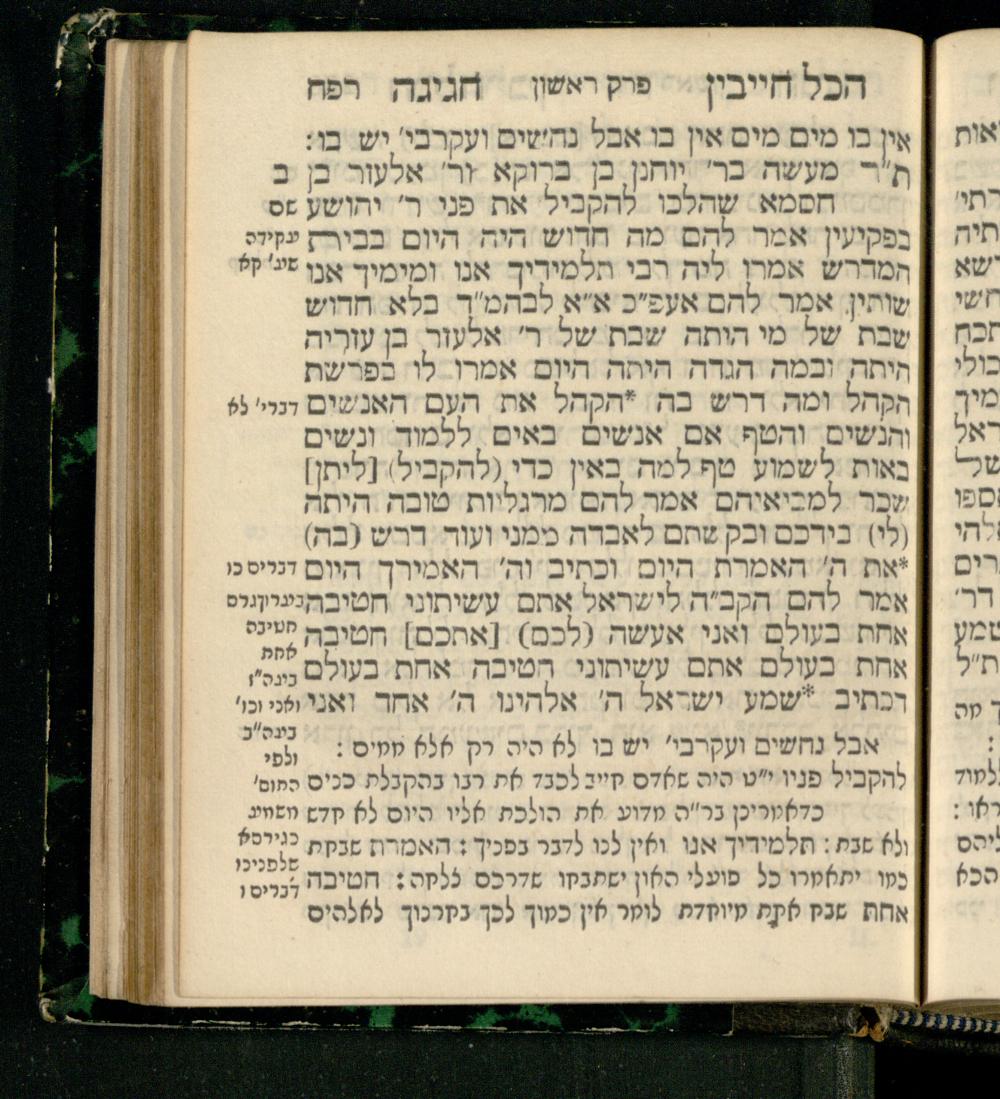 הכל חייבין פרק ראשון חגיגה רפח
אין בו מים מים אין בו אבל נחשים ועקרבי׳ יש בו:
ת״ר מעשה בר׳ יוחנן בן ברוקא ור׳ אלעזר בן
חסמא שהלכו להקביל את פני ר׳ יהושע
בפקיעין אמר להם מה חדוש היה היום בבית
המדרש אמרו ליה רבי תלמידיך אנו ומימיך אנו
שותין. אמר להם אעפ״כ א״א לבהמ״ד בלא חדוש
שבת של מי היתה שבת של ר׳ אלעזר בן עזריה
היתה ובמה הגדה היתה היום אמרו לו בפרשת
הקהל ומה דרש בה *הקהל את העם האנשים
והנשים והטף אם אנשים באים ללמוד ונשים
באות לשמוע טף למה באין כדי (להקביל) [ליתן]
שכר למביאיהם אמר להם מרגליות טובה היתה
(לי) בידכם ובקשתם לאבדה ממני ועוד דרש (בה)
*את ה׳ האמרת היום וכתיב וה׳ האמירך היום
אמר להם הקב״ה לישראל אתם עשיתוני חטיבה
אחת בעולם ואני אעשה (לכם) [אתכם] חטיבה
אחת בעולם אתם עשיתוני חטיבה אחת בעולם
דכתיב *שמע ישראל ה׳ אלהינו ה׳ אחד ואני
אבל נחשים ועקרבי׳ יש בו לא היה רק אלא ממים:
להקביל פניו י״ט היה שאדם חייב לכבד את רבו בהקבלת פנים
כדאמרינן בר״ה מדוע את הולכת אליו היום לא חדש
ולא שבת: תלמידיך אנו ואין לנו לדבר בפניך: האמרת שבחת
כמו יתאמרו כל פועלי האון ישתבחו שדרכם צלחה: חטיבה
אחת שבח אחת מיוחדת לומר אין כמוך לכך בחרנוך לאלהים
ב
שם
עקידה
שע׳ קא
דברי׳ לא
דברים כו
בערוך גרם
חטיבה
אחת
בינה״ו
ואני וכו׳
בינה״ב
ולפי
החום׳
משמע
כגירסא
שלפנינו
דברים ו